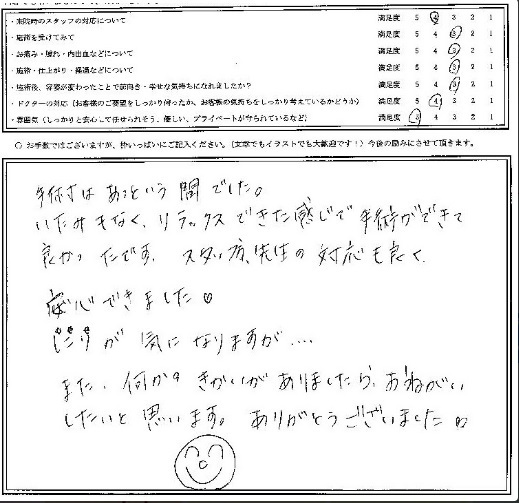 ・来院時のスタッフの対応について 満足度 5 4 3 2 1
・施術を受けてみて 満足度 5 4 3 2 1
・お痛み・腫れ・内出血などについて 満足度 5 4 3 2 1
・施術・仕上がり・経過などについて 満足度 5 4 3 2 1
・施術後、容姿が変わったことで前向き・幸せな気持ちになれましたか？ 満足度 5 4 3 2 1
・ドクターの対応（お客様のご要望をしっかり伺ったか、お客様の気持ちをしっかり考えているかどうか） 満足度 5 4 3 2 1
・雰囲気（しっかりと安心して任せられそう、優しい、プライベートが守られているなど） 満足度 5 4 3 2 1
○ お手数ではございますが、枠いっぱいにご記入ください。（文章でもイラストでも大歓迎です！）今後の励みにさせて頂きます。
手術はあっという間でした。
いたみもなく、リラックスできた感じで手術ができて
良かったです。スタッフ、先生の対応も良く、
安心できました
が気になりますが…
また、何かのきかいがありましたら、おねがい
したいと思います。ありがとうございました